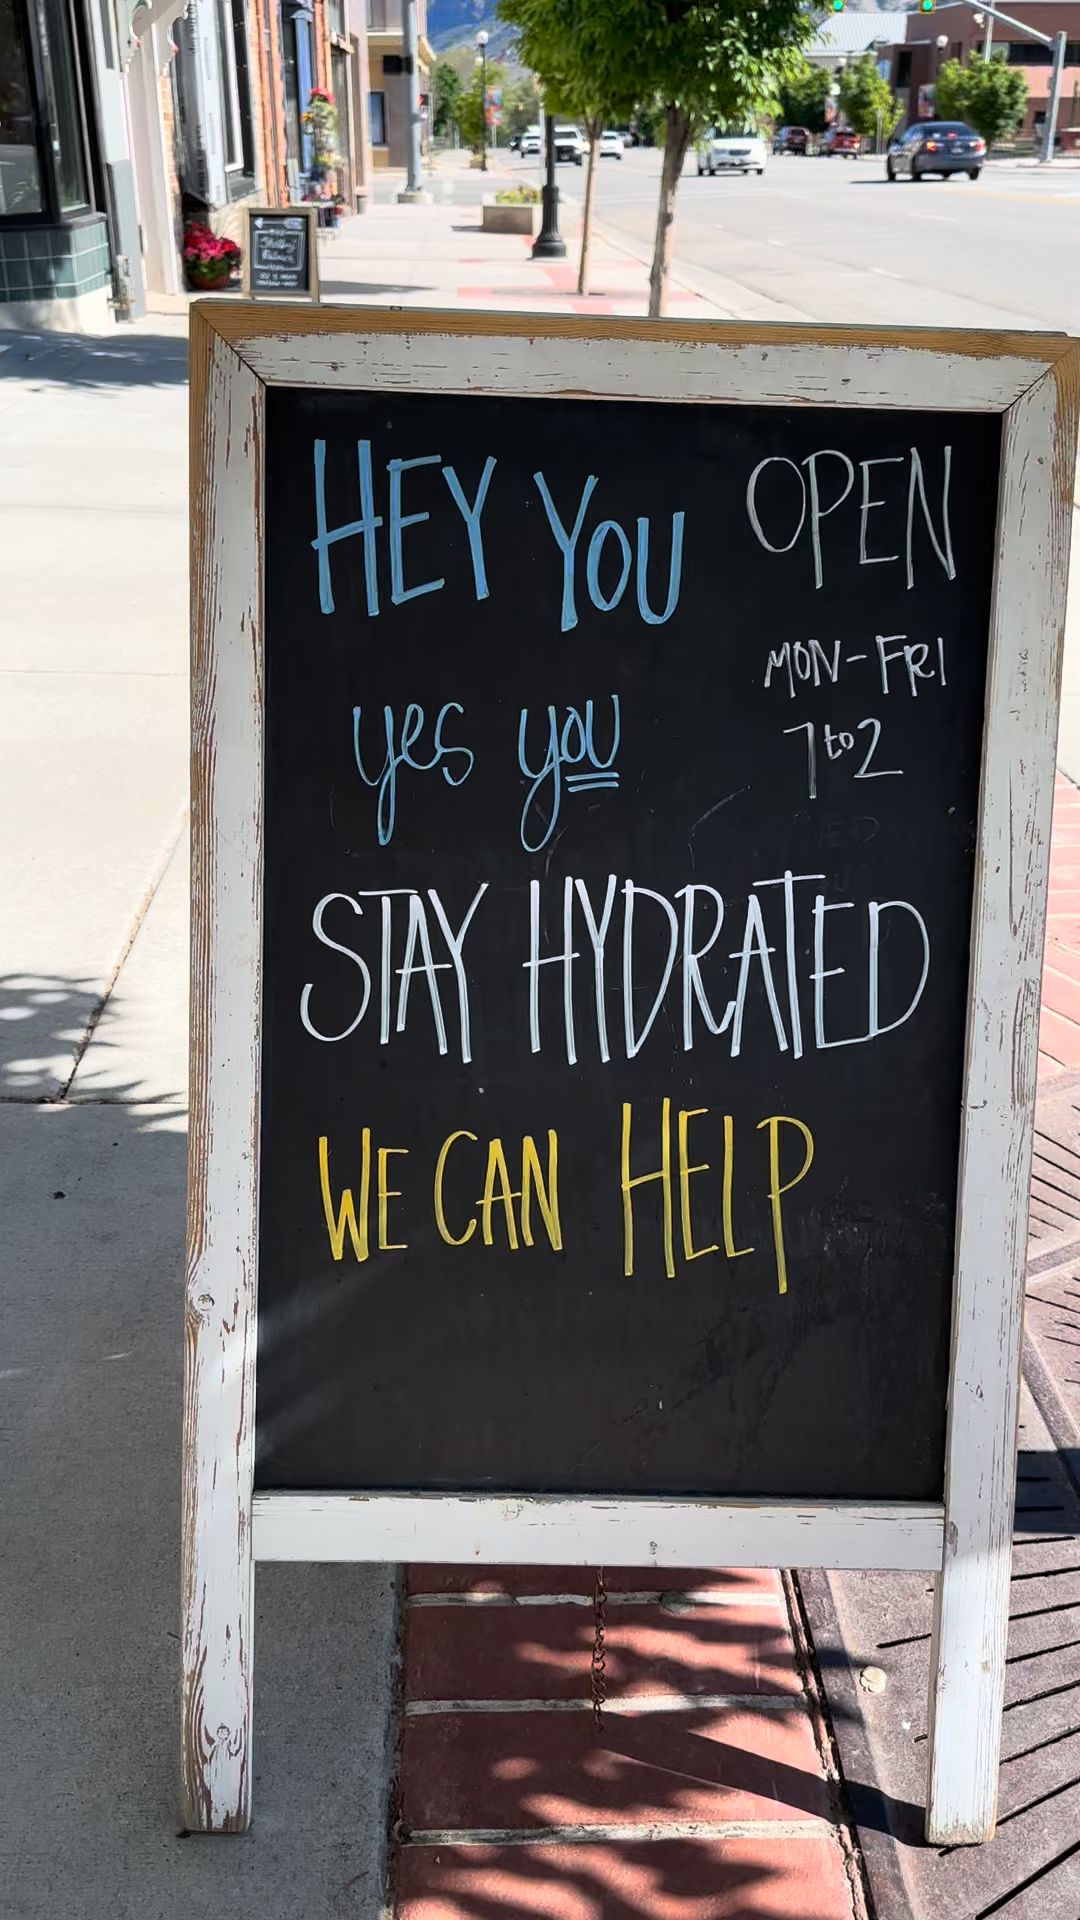 HEY YOU
OPEN
MON-FRI
7 to 2
yes you
STAY HYDRATED
WE CAN HELP